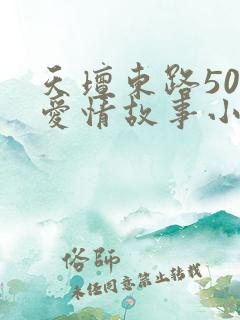 天壇東路50
愛情故事小
俗師
未经同意禁止转载